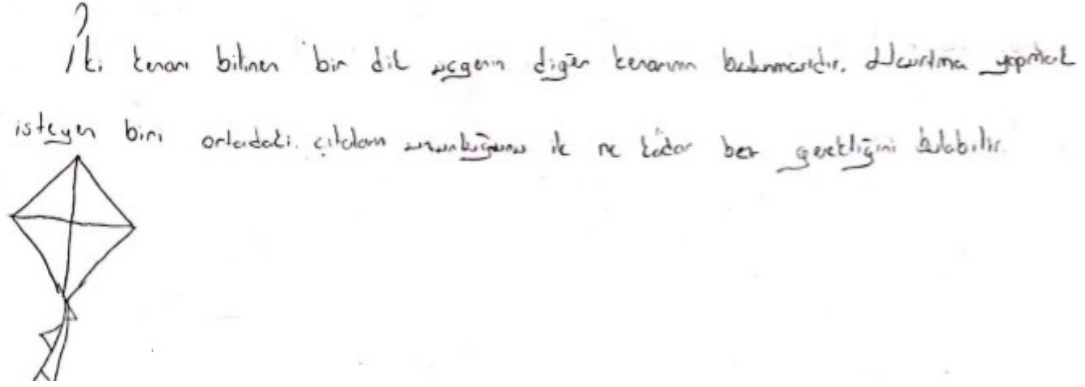 İki kenarı bilinen bir dik üçgenin diğer kenarının bulunmasıdır. Uçurtma yapmak
isteyen biri ortadaki çıtaların uzunluğunu ile ne kadar bez gerektiğini bulabilir.